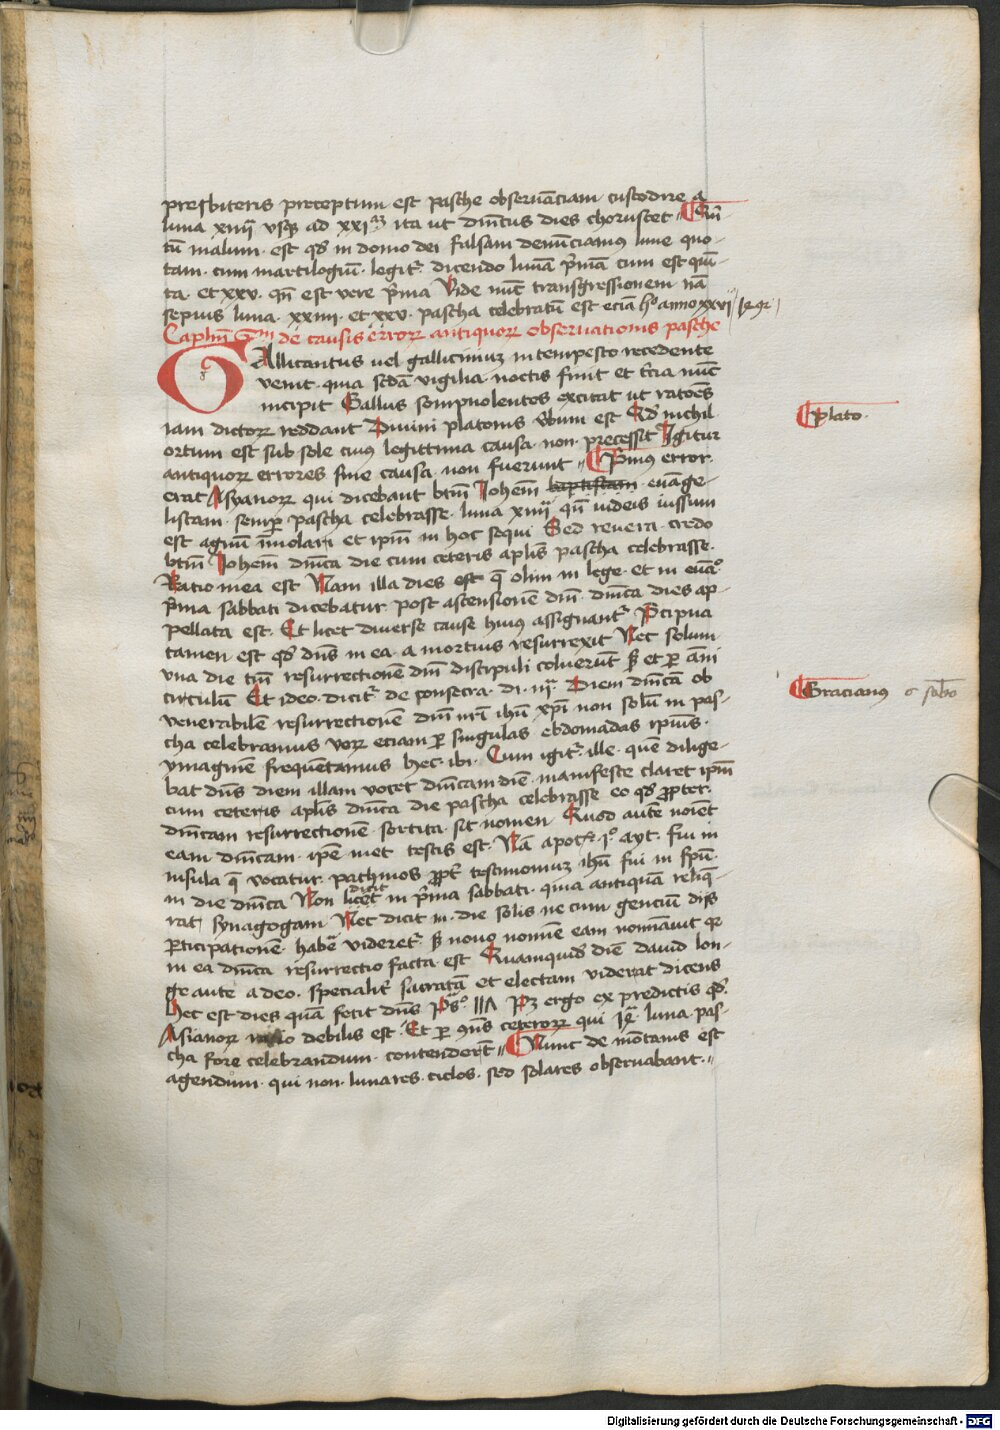 presbiteris preceptum est pasche obseruãciam custodire a
luna xiiij vsqȝ ad XXIaȝ ita ut dñicus dies choruscet
tũ malum · est qđ in domo dei falsam denũciamus lune quo-
tam · cum martilogiũ · legitr̃ dicendo lunã p̃mã cum est quĩ-
ta · et xxv · qñ est vere p̃ma Vide nũc transgressionem nã
sepius luna · xxiiii · et xxv · pascha celebratũ est eciã ho anno xxvi
Caplm̃ de causis erroꝝ antiquoꝝ obseruationis pasche
GAllicantus uel gallicinuȝ intempesto recedente
venit · quia scđa vigilia noctis finit et t̃cia nũc
incipit Gallus sompnolentos excitat ut ratoẽs
iam dictoꝝ reddant Diuini platonis v̾bum est Qđ nichil
ortum est sub sole cuiꝰ legittima causa non precessit Igitur
antiquoꝝ errores sine causa non fuerunt P̃imꝰ error
erat Asyanoꝝ qui dicebant btm̃ Iohem̃ baptistam euãge-
listam · semp̱ pascha celebrasse luna xiiij qñ iudeis iussum
est agnũ ĩmolari et ip̃m in hoc sequi Sed reuera credo
btm̃ Iohem̃ dñica die cum ceteris aplis̃ pascha celebrasse ·
Ratio mea est Nam illa dies est q̃ olim in lege · et in euão
p̃ma sabbati dicebatur post ascensionẽ dñi · dñica dies ap-
pellata est · Et licet diuerse cause huiꝰ assignantr̃ P̃cipua
tamen est qđ dñs in ea · a mortuis resurrexit Nec solum
vna die tm̃ resurrectionẽ dñi discipuli coluerũt sꝫ et ꝑ ãni
circulũ Et ideo dicitr̃ de consecra · di · iij Diem dñicã ob
venerabilẽ resurrectionẽ dñi nrĩ ihũ xp̃i non solũ in pas-
cha celebramus veꝝ eciam ꝑ singulas ebdomadas ipius̃ ·
ymaginẽ frequẽtamus hec ibi · Cum igitr̃ ille quẽ dilige-
bat dñs diem illam vocet dñicam diẽ manifeste claret ip̃m
cum ceteris aplis̃ dñica die pascha celebrasse eo qđ ꝓpter
dñicam resurrectionẽ sortita sit nomen · Quod autẽ noiẽt
eam dñicam ip̃e met testis est · Nã apoc · io ayt · fui in
insula q̃ vocatur pathmos ꝓpt̃ testimoniuȝ ihũ fui in sp̃u ·
in die dñica Non licet dicit in p̃ma sabbati · quia antiquã reliq̃-
rat synagogam Nec dicit in die solis ne cum genciũ diis
ꝑticipationẽ habẽ videretr̃ sꝫ nouo nomĩe eam nomĩauit qꝛ
in ea dñica resurrectio facta est Quamquid̃ diẽ dauid lon-
ge ante a deo · specialit̃ sacratã et electam viderat dicens
Hec est dies quã fecit dñs Pso · Pȝ ergo ex predictis qđ
Asianoꝝ racio debilis est Et ꝑ ꝯñs ceteroꝝ qui luna pas-
cha fore celebrandum · contendeꝛ̃t Nunc de mõtanis est
agendum · qui non lunares · ciclos · sed solares obseruabant ·
Plato ·
Gracianus